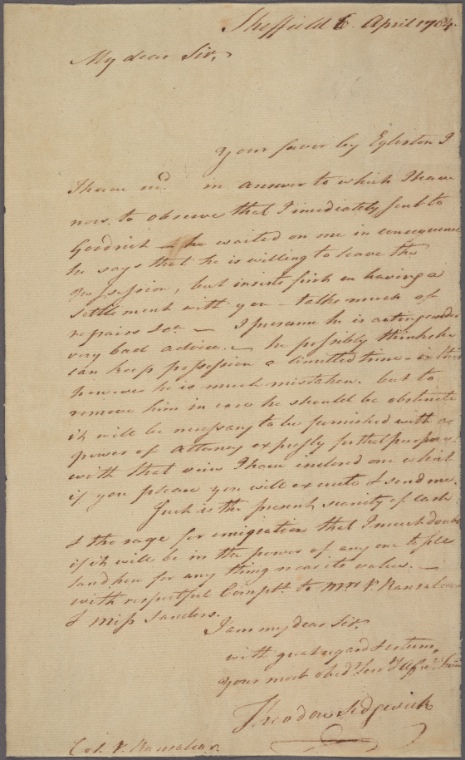 Sheffield 6 April 1784.
My dear Sir,
Your favor by Egleston I
I have recd. in answer to which I have
now to observe that I imediately sent to
Goodrich — he waited on me in consequence
he says that he is willing to leave the
possession, but insists first on having a
settlement with you — talks much of
repairs &ca — I presume he is acting under
very bad advice — he possibly thinks he
can keep possession a limitted time in this
however he is much mistaken. but to
remove him in case he should be obstinate
it will be necessary to be furnished with a
power of Attorney expressly for that purpose
with that view I have inclosed one which
if you please you will execute & send me.
Such is the present scarcity of cash
& the rage for emigration that I much doubt
if it will be in the power of any one to sell
land here for any thing near its value. —
with respectful Compts. to Mrs V. Ranselaer
& Miss Sanders.
I am my dear Sir,
with great regard & esteem,
your most obed.
Theodore Sedgwick
Col. V. Ranselaer